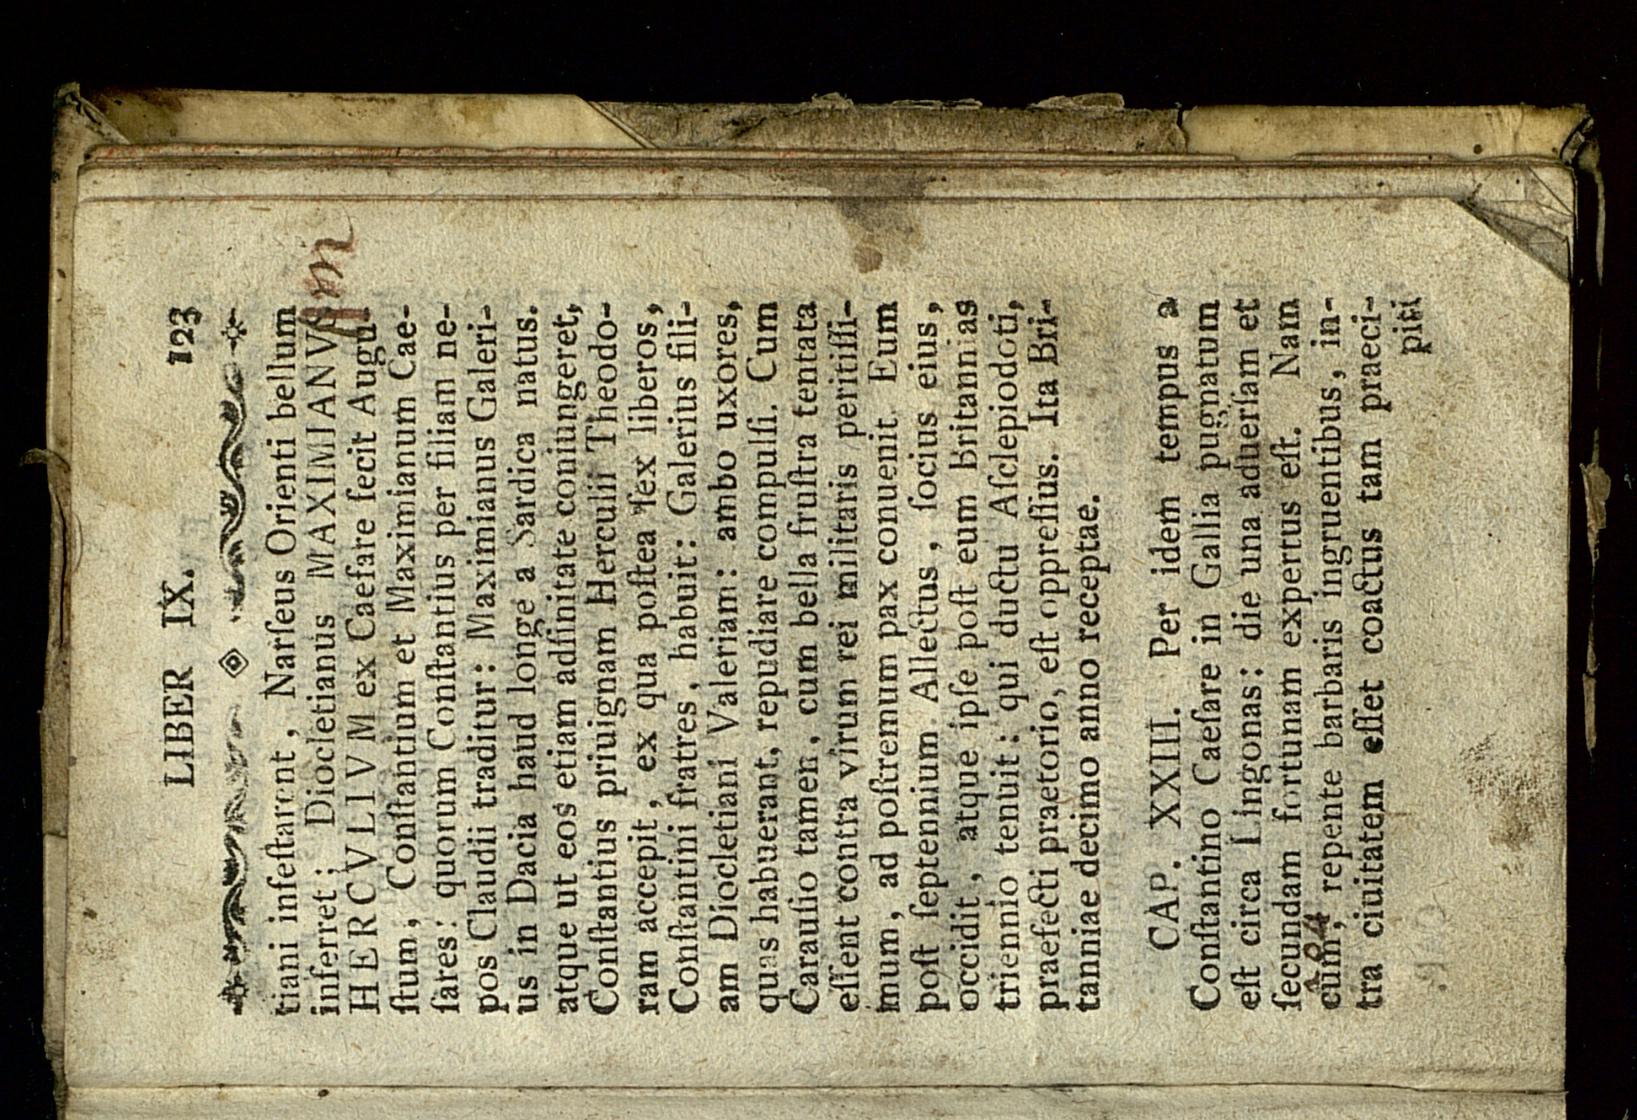 LIBER IX. 123
tiani infeſtarent, Narſeus Orienti bellum
inferret; Diocletianus MAXIMIANVM
HERCVLIVM ex Caeſare fecit Augu-
ſtum, Conſtantium et Maximianum Cae-
ſares: quorum Conſtantius per filiam ne-
pos Claudi traditur: Maximianus Galeri-
us in Dacia haud longe a Sardica natus.
atque ut eos etiam adfinitate coniungeret,
Conſtantius priuignam Herculii Theodo-
ram accepit, ex qua poſtea ſex liberos,
Conſtantini fratres, habuit: Galerius fili-
am Diocletiani Valeriam: ambo uxores,
quas habuerant, repudiare compulſi. Cum
Carauſio tamen, cum bella fruſtra tentata
eſſent contra virum rei militaris peritiſſi-
mum, ad poſtremum pax conuenit. Eum
poſt ſeptennium Allectus, ſocius eius,
occidit, atque ipſe poſt eum Britannias
triennio tenuit: qui ductu Aſclepiodoti,
praefecti praetorio, eſt oppreſſus. Ita Bri-
tanniae decimo anno receptae.
CAP. XXIII. Per idem tempus a
Conſtantino Caeſare in Gallia pugnatum
eſt circa Lingonas: die una aduerſam et
ſecundam fortunam expertus eſt. Nam
cum, repente barbaris ingruentibus, in-
tra ciuitatem eſſet coactus tam praeci-
piti